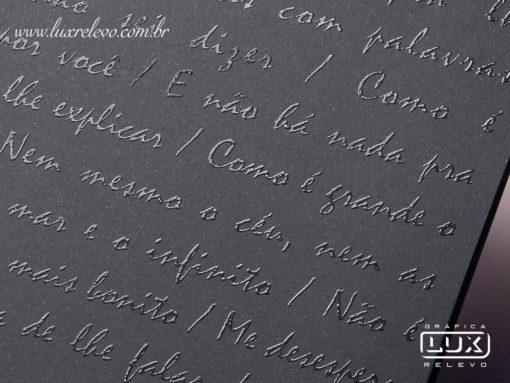 www.luxrelevo.com.br
dizer / Como é
com palavras
por você / E não há nada pra
lhe explicar / Como é grande o
Nem mesmo o céu, nem as
mar e o infinito / Não é
mais bonito / Me desespe
de lhe falar
GRÁFICA
LUX
RELEVO